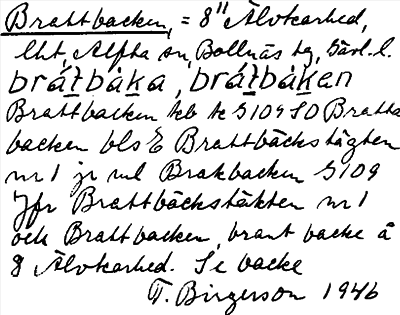 Brattbacken, = 8" Älvkarhed,
lht, Alfta sn, Bollnäs tg, Gävl. l.
brát̲bàka, brát̲bàken
Brattbacken kb k G109 SO Bratta
backen bls E Brattbäckstägten
nr 1 jr ml Brakbacken G109
Jfr Brattbäckstäkten nr 1
och Brattbacken, brant backe å
8 Älvkarhed. Se backe
T. Birgerson 1946